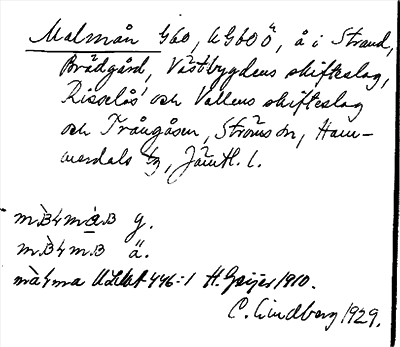 Malmån G60, UG60Ö, å i Strand,
Brådgård, Västbygdens skifteslag,
Risselås och Vallens skifteslag
och Trångåsen, Ströms sn, Ham-
merdals tg, Jämtl. l.
g.
ä.
446:1 H. Geijer 1910.
C. Lindberg 1929.